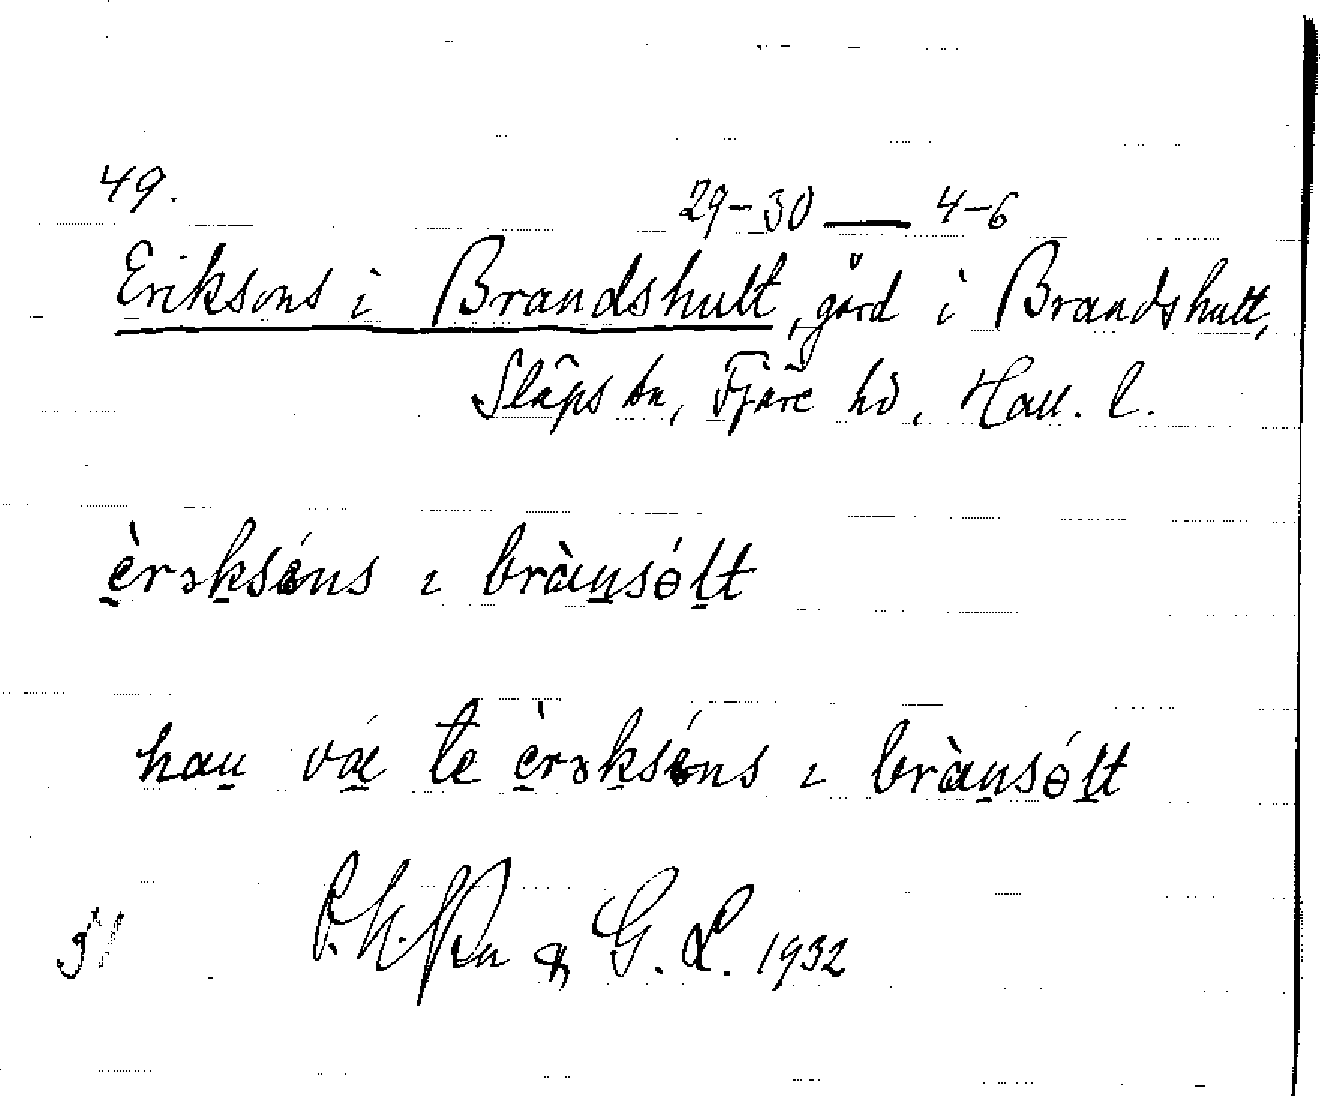 49.
29-30 — 4-6
Eriksons i Brandshult, gård i Brandshult,
Släps sn, Fjäre hd, Hall. l.
èrəksóns ɩ brànsólt
han vá te èrəksóns ɩ brànsólt
& G. L. 1932